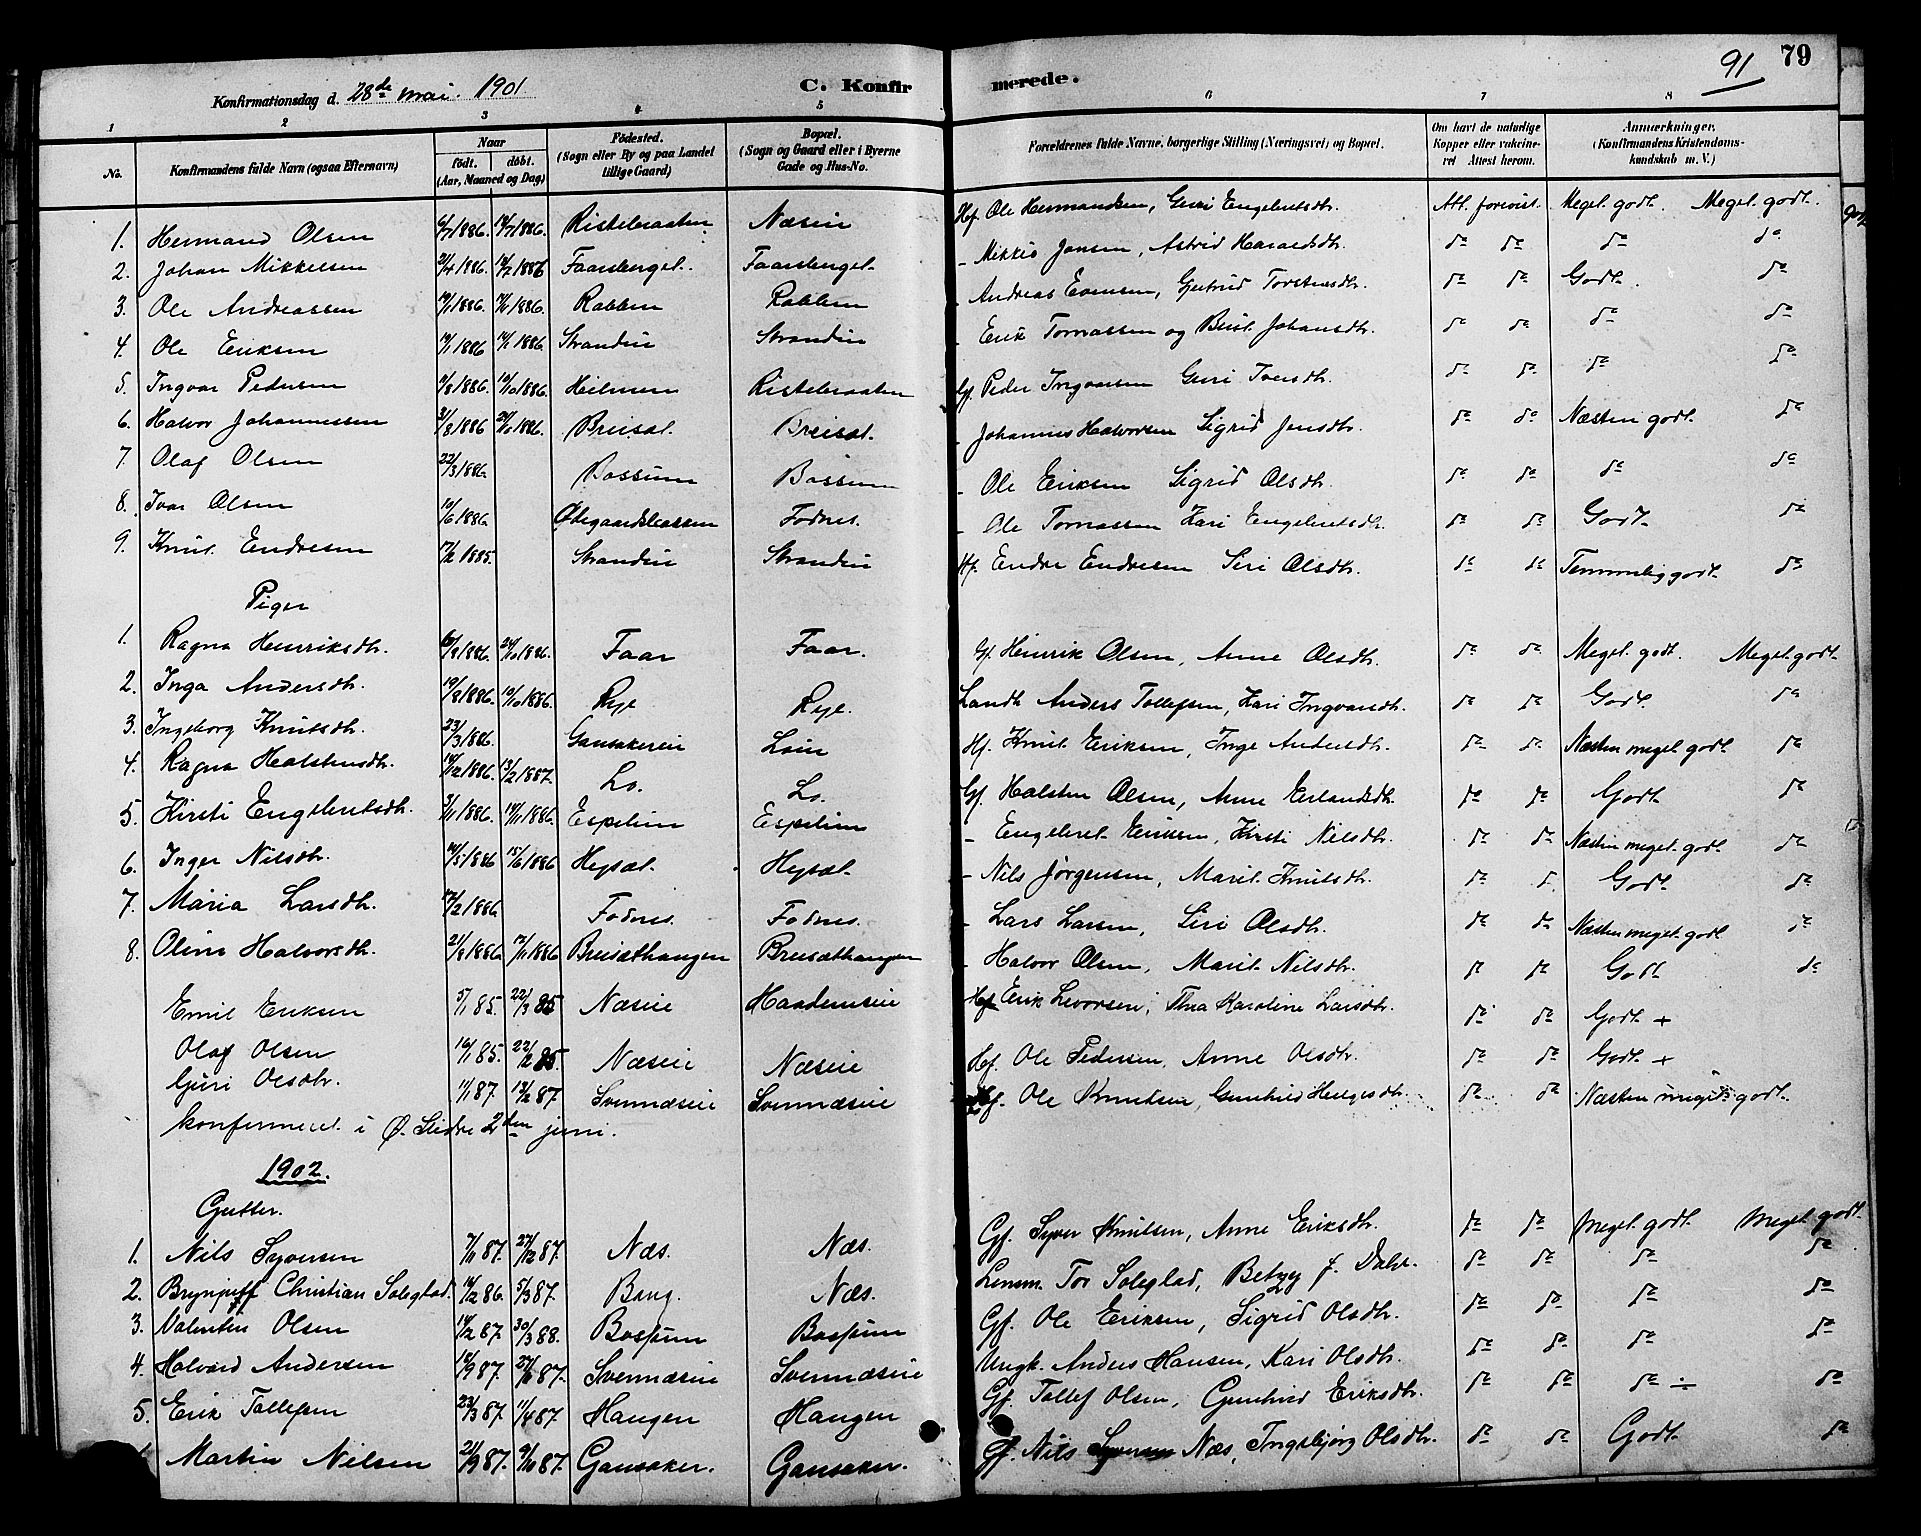 91 79
Konfirmationsdag d. 28de mai. 1901 C. Konfirmerede.
1 2 3 4 5 6 7 8
No. Konfirmandens fulde Navn (ogsaa Efternavn) Naar födt. döbt. (Aar, Maaned og Dag) Födested. (Sogn eller By og paa Landet tillige Gaard) Bopæl. (Sogn og Gaard eller i Byerne Gade og Hus-No. Forældrenes fulde Navne, borgerlige Stilling (Næringsvei) og Bopæl. Om havt de naturlige Kopper eller vakcineret Attest herom. Anmærkninger. (Konfirmandens Kristendomskundskab m. V.)
1. Hermand Olsen 6/7 1886. 14/7 1886. Ristebraaten Næseie Hf. Ole Hermandsen, Guri Engebretsdtr. Att. forevist. Meget godt. Meget godt.
2. Johan Mikkelsen 2/4 1886. 1886 Faarslengel. Faarslengel. - Mikkis Jonsen, Astrid Haraldsdtr. do do do do
3. Ole Andreassen 1886. 1886. Robben Robben - Andreas Evensen, Gertrud Torstensdtr. do do Godt. do
4. Ole Eriksen 1886 1886. Strandin Strandin - Erik Tomassen og Berit Johansdtr. do do do do
5. Ingvar Pedersen 1886. 1886. Heilmen Ristebraaten Gf. Peder Ingvarsen Guri Iversdtr. do do do do
6. Halvor Johannessen 31/8 1886 1886. Breisæt. Breisæt. - Johannes Halvorsen Sigrid Jensdtr. do do Næsten godt. do
7. Olaf Olsen 22/3 1886. Bossum Bossum - Ole Eriksen Sigrid Olsdtr. do do do do
8. Ivar Olsen 10/6 1886. Ødegaardsbakken Fodnes. - Ole Tomassen Kari Engebretsdtr. do do Godt do
9. Knut Endresen 17/2 1885. Strandin Strandin Hf. Endre Endresen Siri Olsdtr. do do Temmelig godt. do
Piger
1. Ragna Henriksdtr. 1886. 24/10 1886. Faar Faar. Gf. Henrik Olsen, Anne Olsdtr. do do Meget godt. Meget godt.
2. Inga Andersdtr. 19/8 1886. 10/10 1886. Rye Rye. Landh Anders Tollefsen, Kari Ingvarsdtr. do do Godt. do
3. Ingeborg Knutsdtr. 23/3 1886. Gansakereie Loin Hf. Knut Eriksen, Inge Andersdtr. do do Næsten meget godt do
4. Ragna Halstensdtr. 14/12 1886. 13/2 1887. Lo. Lo. Gf. Halsten Olsen, Anne Erlandsdtr. do do Godt do
5. Kirsti Engebretsdtr. 3/11 1886. 14/11 1886. Espelien Espelien - Engebret Eriksen, Kirsti Nilsdtr. do do Næsten meget godt do
6. Inger Nilsdtr. 14/5 1886 15/6 1886 Hepsæt. Hepsæt - Nils Jörgensen, Marit Knutsdtr. do d. Godt do
7. Maria Larsdtr. 17/2 1886. Fodnes. Fodnes. - Lars Larsen, Siri Olsdtr. do do Næsten meget godt do
8. Oline Halvorsdtr. 21/8 1886 1886 Breisæthaugen Breisæthaugen - Halvor Olsen, Marit Nilsdtr. do do Godt do
Emil Eriksen 5/1 85. 22/3 85 Næseie Haademseie Hf Erik Levorsen, Thea Karoline Larsdtr. do do Godt +
Olaf Olsen 16/1 85. 22/2 85. Næseie Næseie Hf. Ole Pedersen, Anne Olsdtr. do do Godt +
Guri Olsdtr. 1/1 87. 13/2 87. Svennæseie Svennæseie Hf. Ole Knutsen, Gunhild Helgesdtr. do do Næsten meget godt.
konfirmeret i Ø. Slidre 2den juni.
1902.
Gutter.
1. Nils Syversen 7/11 87. 27/12 87. Næs. Næs. Gf. Syver Knutsen, Anne Eriksdtr. do do Meget godt. Meget godt.
2. Brynjulf Christian Soleglad. 16/12 86. 5/3 87. Bang. Næs. Lensm. Tor Soleglad, Betzy f. Dahl. do do do do
3. Valentin Olsen 14/2 87. 30/3 88. Bossum Bossum Gf. Ole Eriksen, Sigrid Olsdtr. do do do do
4. Halvard Andersen 18/9 87. 87. Svennæseie Svennæseie Ungk. Anders Hansen, Kari Olsdtr. do do do do
5. Erik Tollefsen 23/3 87. 11/4 87. Haugen Haugen Gf. Tollef Olsen, Gunhild Eriksdtr. do do do ÷ do
Martin Nilsen 21/9 87. 9/10 87. Gansaker. Gansaker. Gf. Nils Næs, Ingebjörg Olsdtr. do do Godt do